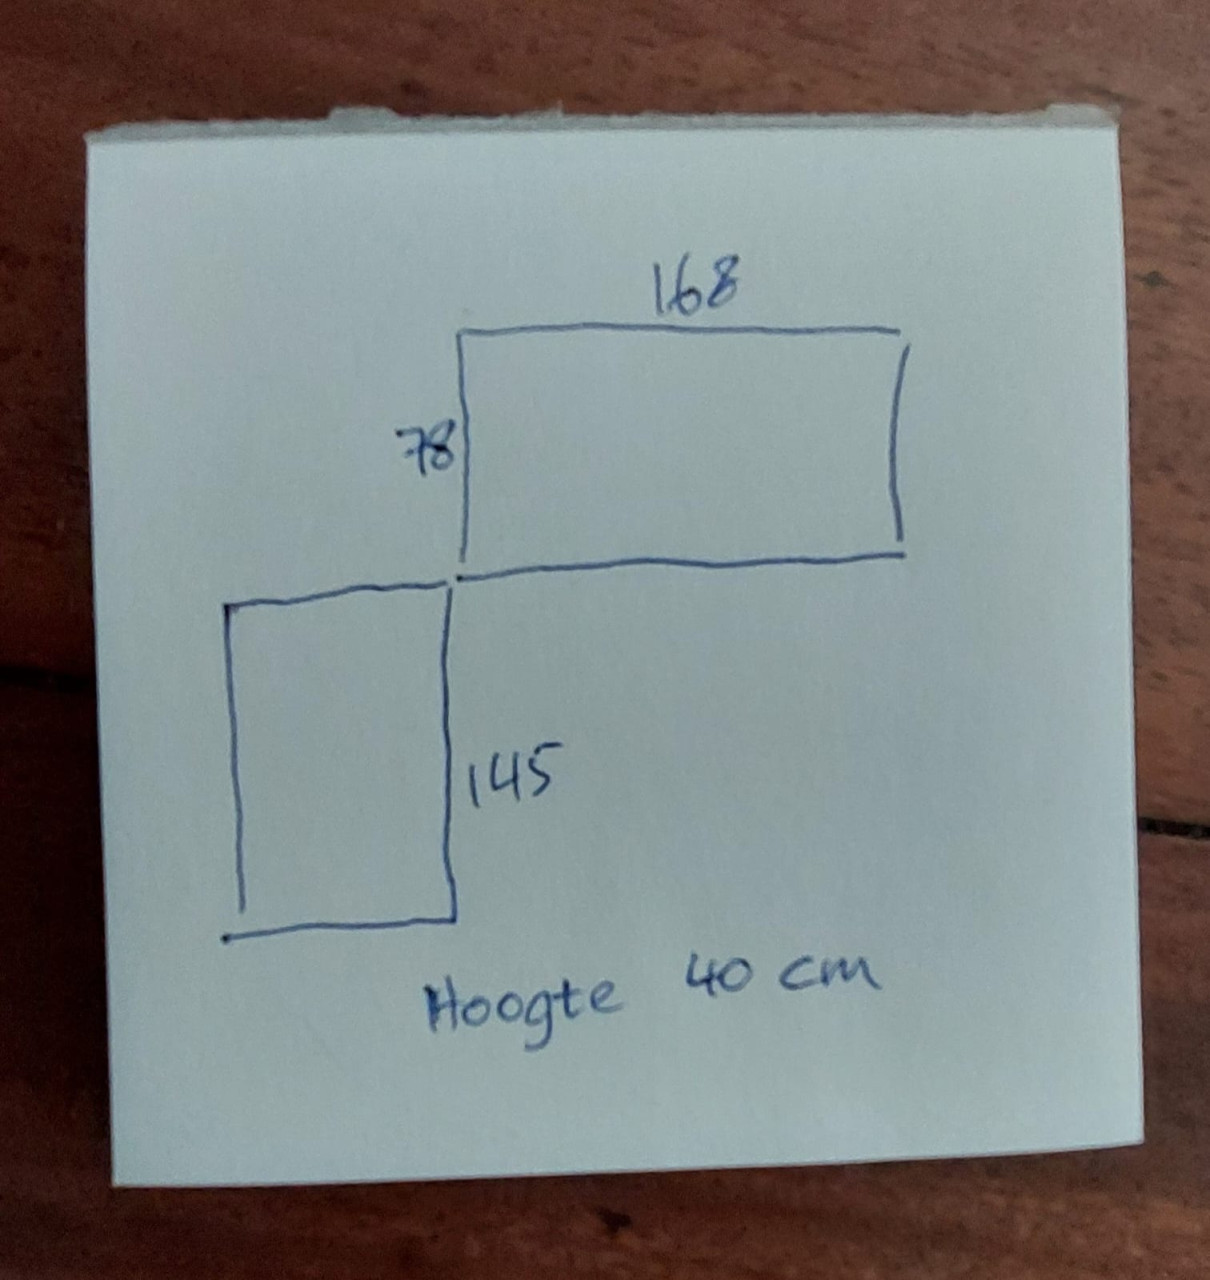 168
78
145
Hoogte 40 cm